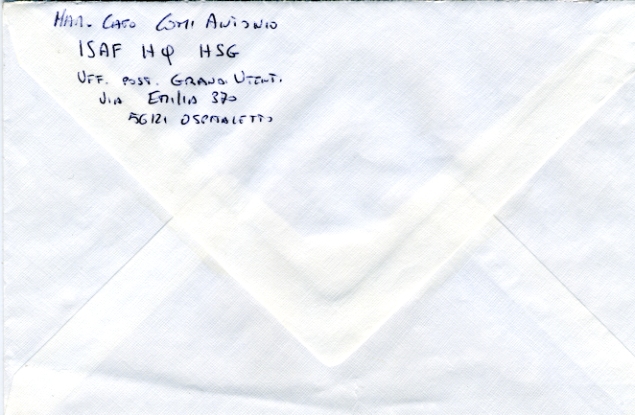 MAR. CAPO COMI ANTONIO
ISAF HQ HSG
UFF. POST. GRANDI UTENTI.
VIA EMILIA 370
56121 OSPEDALETTO